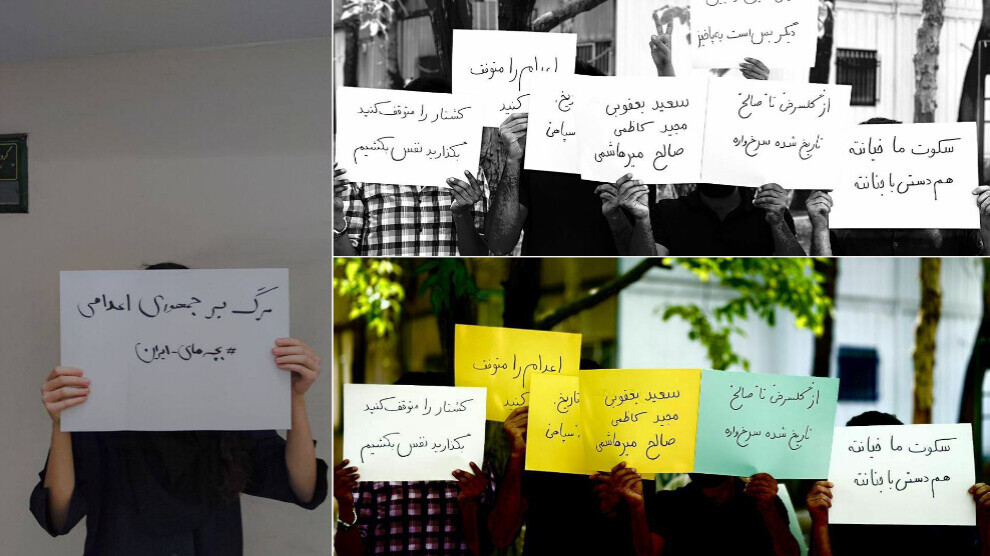 مرگ بر جمهوری اعدامی
#بچه‌های_ایران
دیگر بس است بپاخیز
اعدام را متوقف
کنید
کشتار را متوقف کنید
بگذارید نفس بکشیم
تاریخ
سپاهی
سعید یعقوبی
مجید کاظمی
صالح میرهاشمی
از گلسرخی تا صالح
تاریخ شده سرخ‌واره
سکوت ما خیانته
هم‌دستی با جنانته
اعدام را متوقف
کنید
کشتار را متوقف کنید
بگذارید نفس بکشیم
تاریخ
سپاهی
سعید یعقوبی
مجید کاظمی
صالح میرهاشمی
از گلسرخی تا صالح
تاریخ شده سرخ‌واره
سکوت ما خیانته
هم‌دستی با جنانته